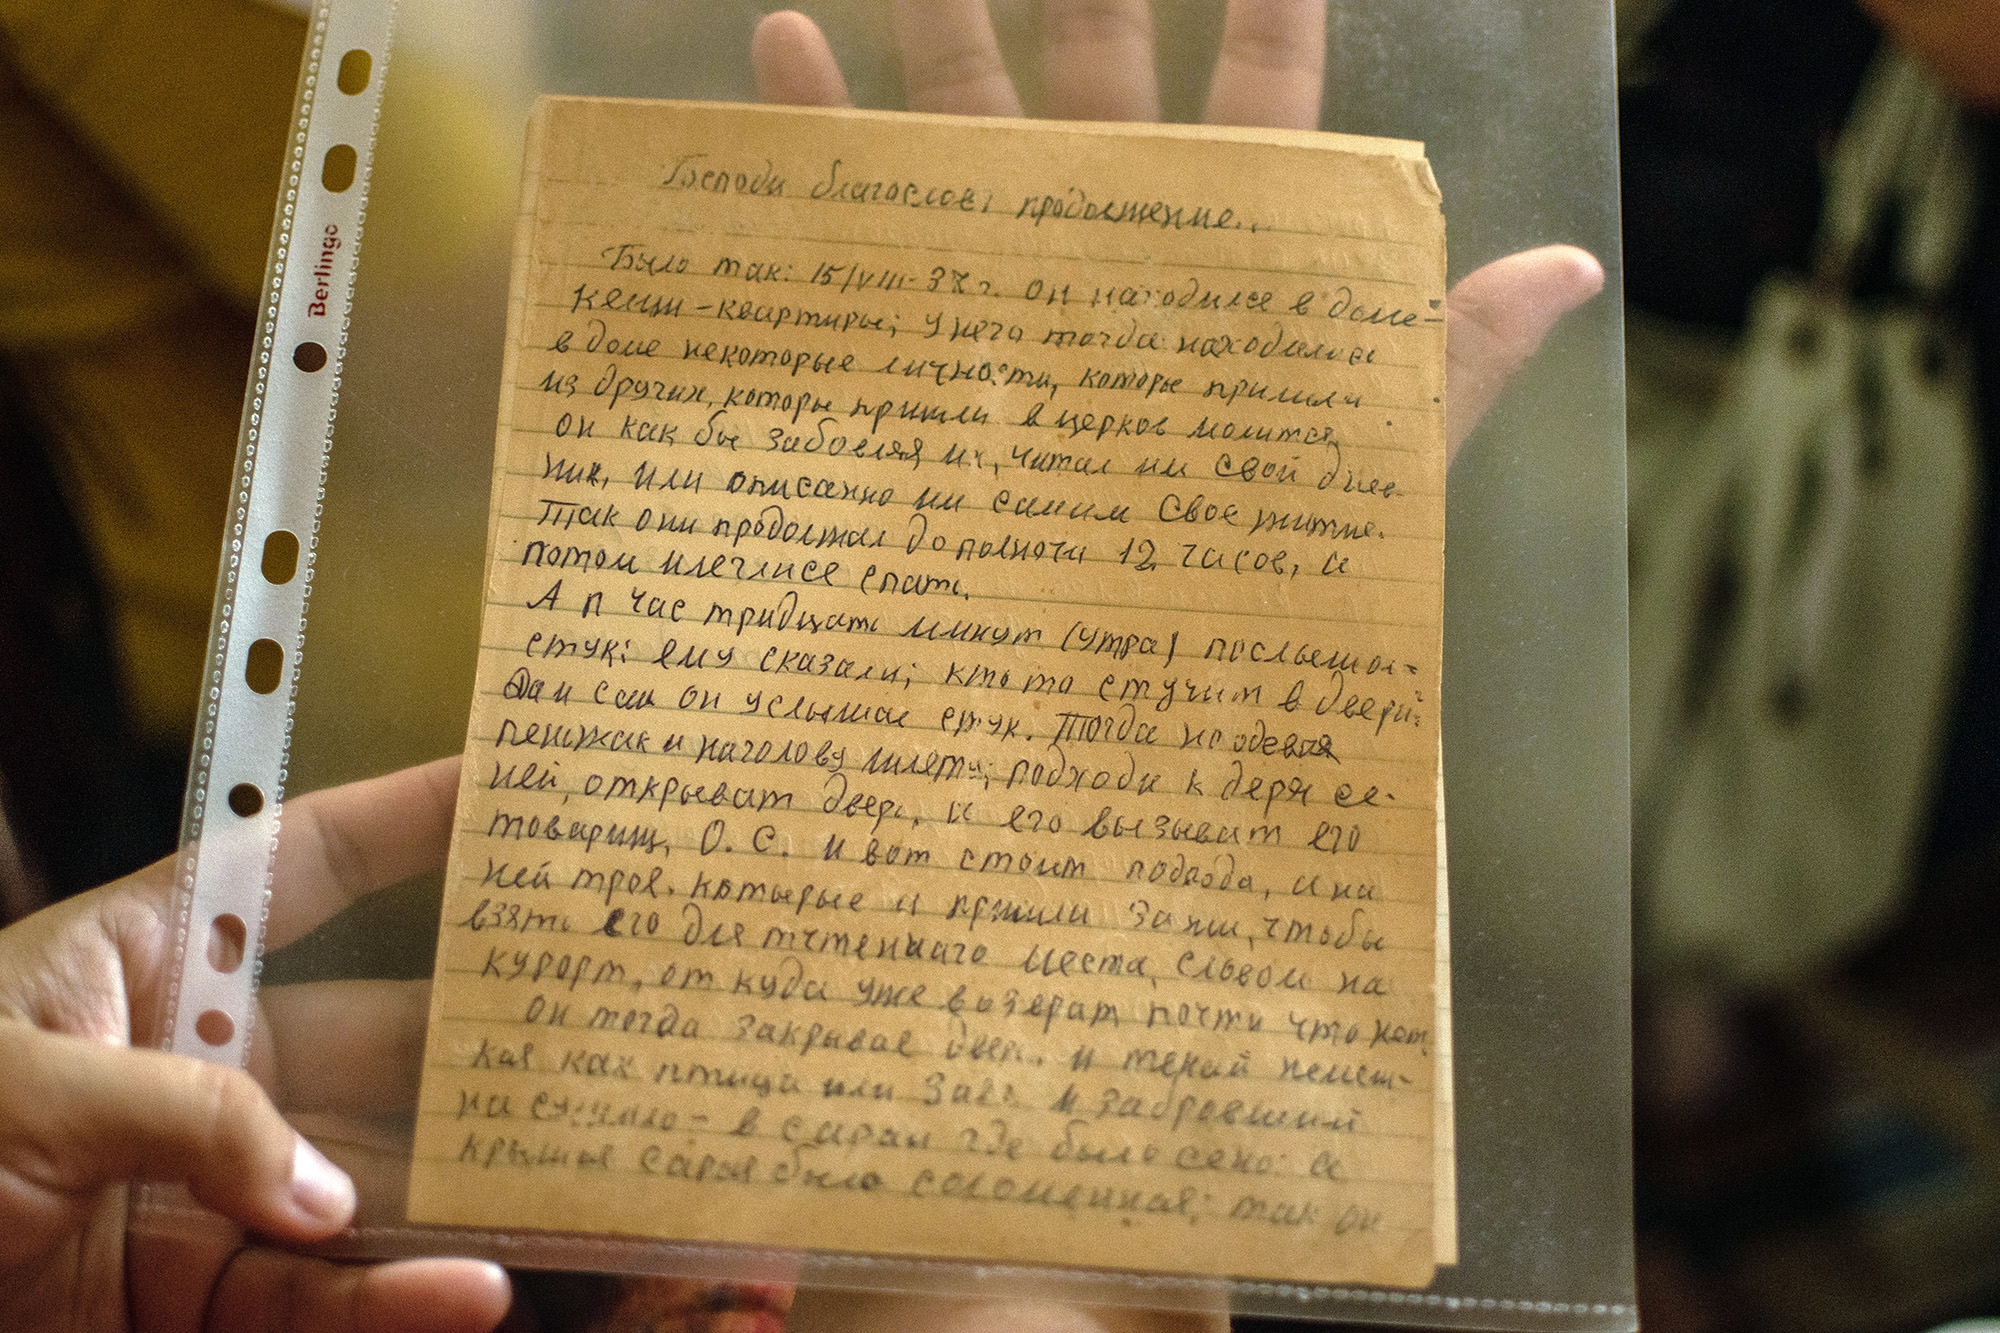 Berlingo
Господи благослови продолжение..
Было так: 15/VIII-37 г. он находился в доме-
кещи-квартиры; у него тогда находились
в доме некоторые личности, которые пришли
из других, которы пришли в церков молится
он как бы забовляя их, читал им свой днев-
ник, или описанно им самим свое житие.
Так они продолжал до полночи 12 часов, и
потом улеглися спать.
А п час тридцать минут (утра) послышол=
стук: ему сказали; кто то стучит в двери:
Да и сам он услышал стук. Тогда но одевая
пенжак и наголову шляпу; подходи к деря се-
ней, открыват дверь, и его вызыват его
товарищ, О. С. и вот стоит подвода, и на
ней трое. котырые и пришли за ним, чтобы
взять его для тчтеннаго места, словом на
курорт, от куда уже возврат почти что нет
Он тогда закрывае двер. и
кая как птица или и забровший
на в сараи где было сено: а
крышая сарая было соломенная; так он